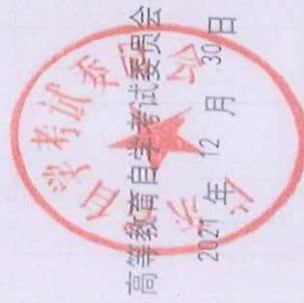 高等教育自学考试委员会
2021 年 12 月 30 日
自学考试委